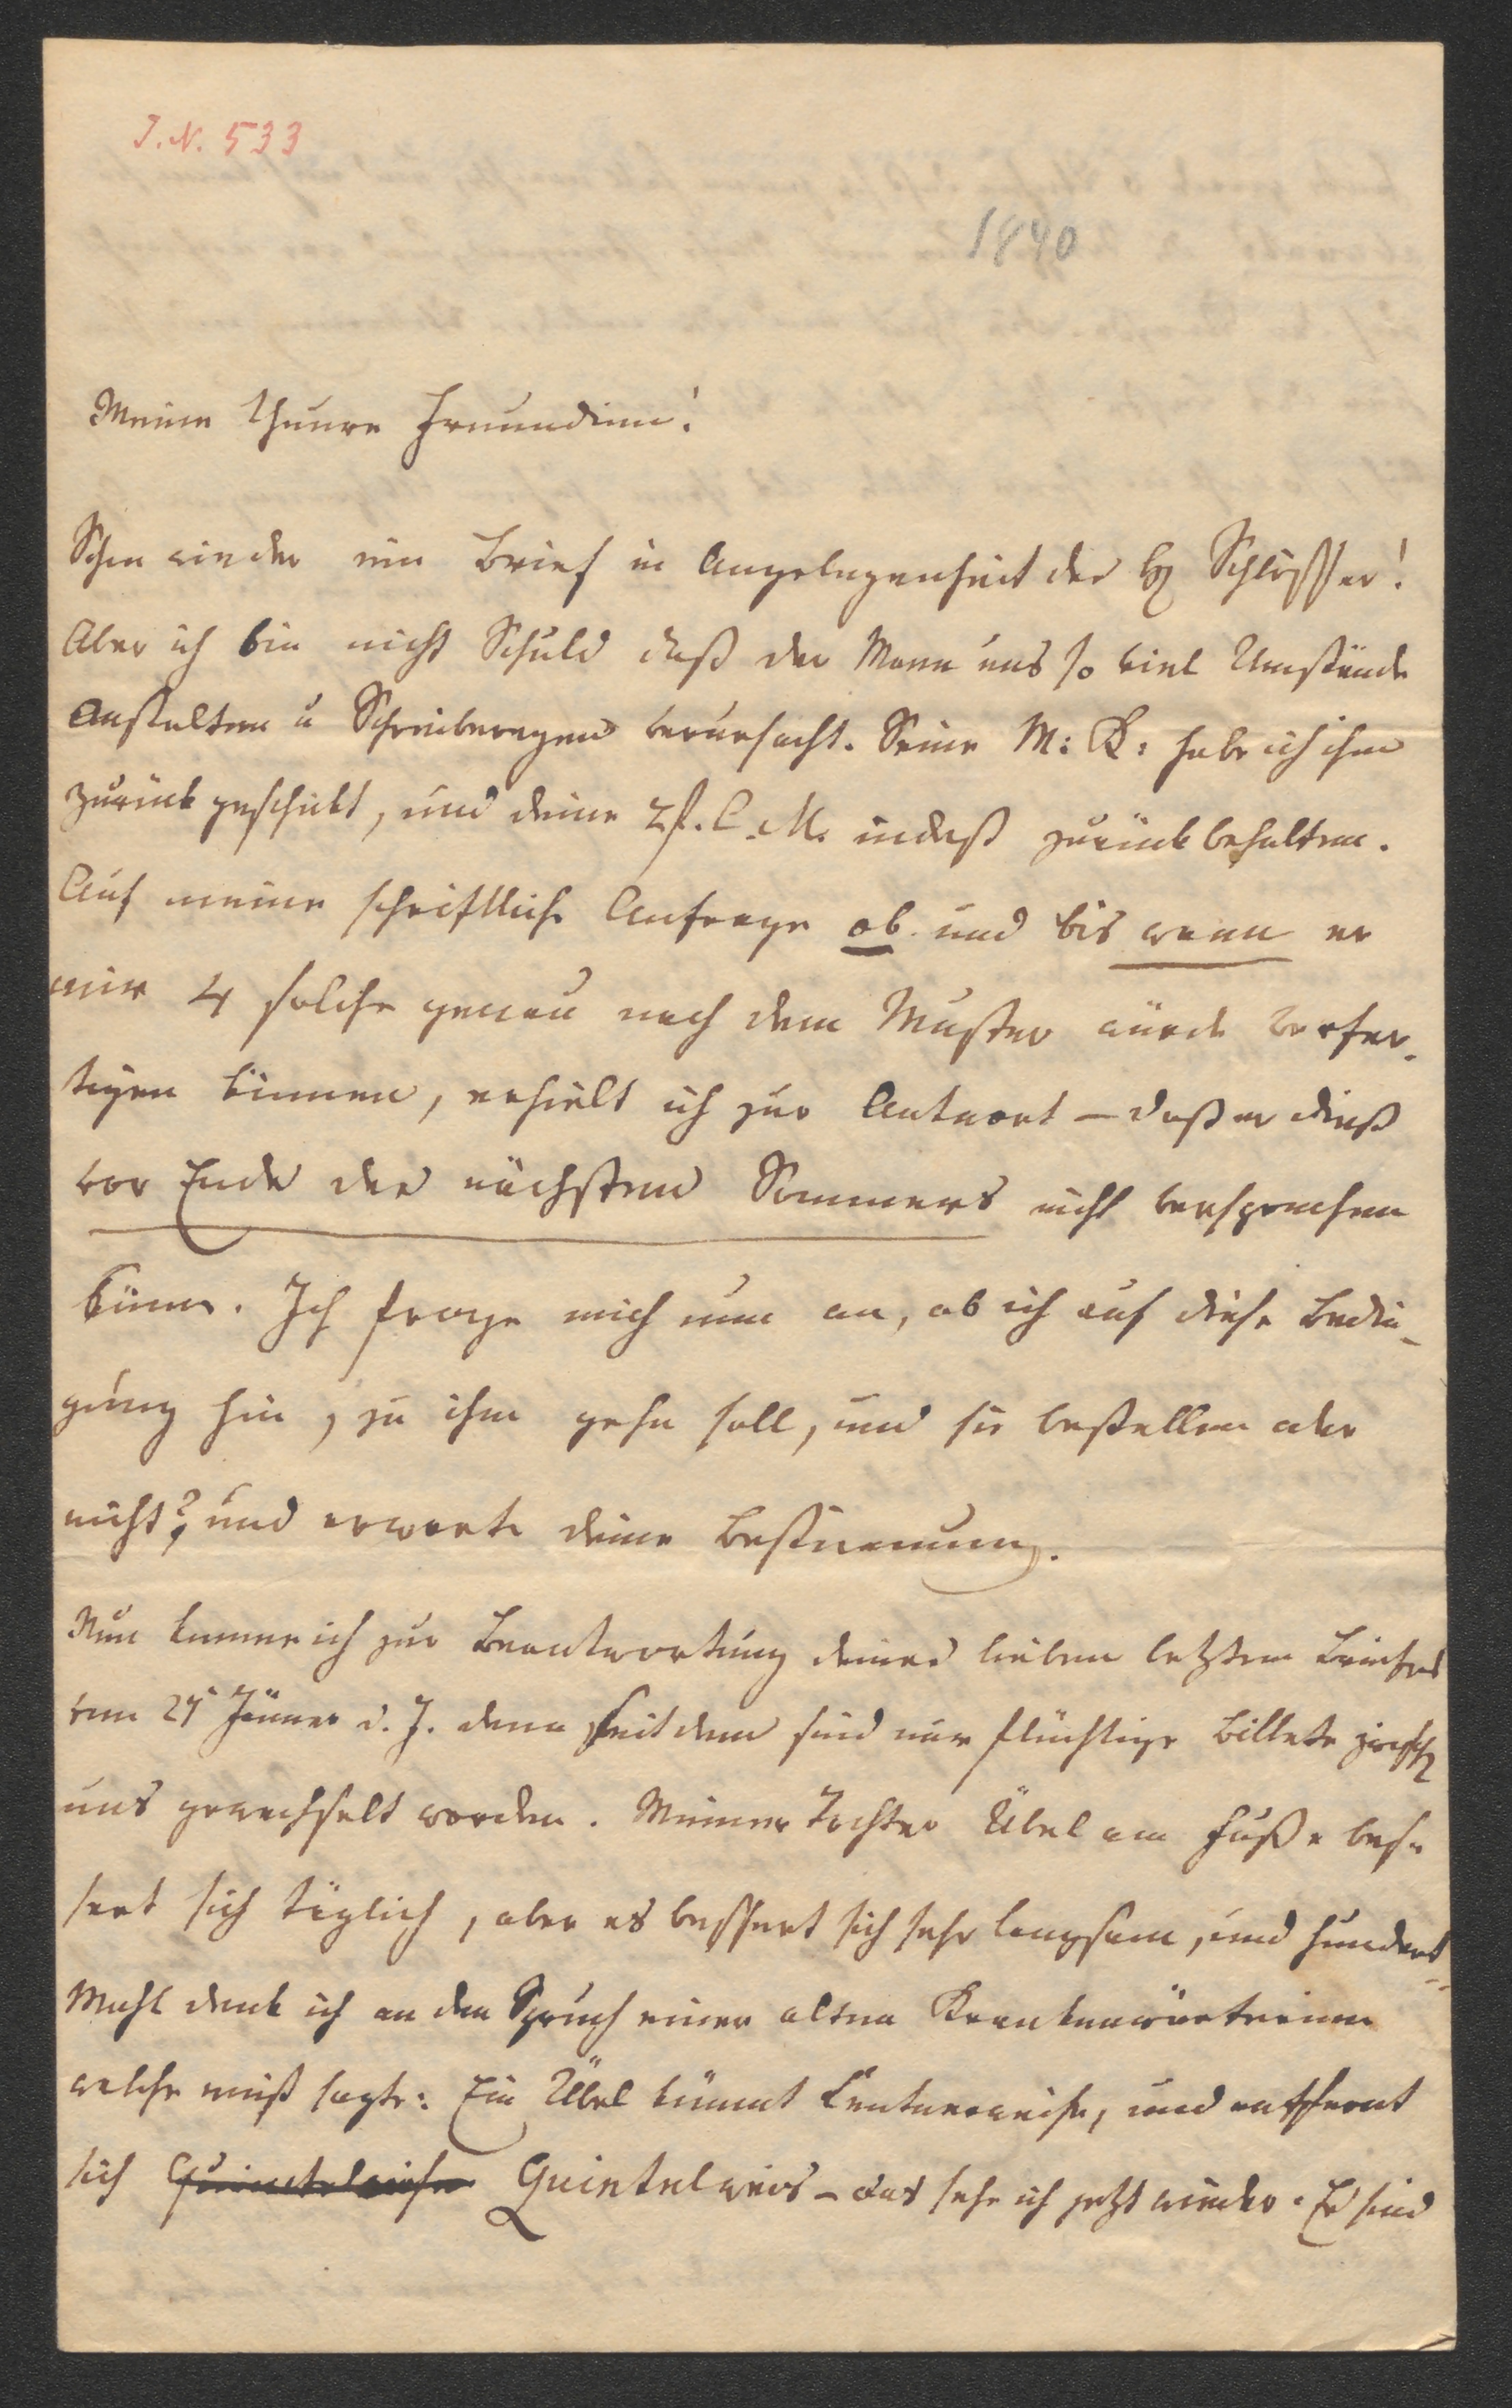 J. N. 533
1840
Meine theure Freundinn!
Schon wieder ein Brief in Angelegenheit des H Schlosser!
Aber ich bin nicht Schuld daß der Mann uns so viel Umstände
Anstalten u Schreibereyen verursacht. Seine M: K: habe ich ihm
zurück geschickt, und deine 2 f. C. M. indeß zurückbehalten.
Auf meine schriftliche Anfrage ob und bis wann er
mir 4 solche genau nach dem Muster würde verfer-
tigen können, erhielt ich zur Antwort – daß er dieß
vor Ende des nächsten Sommers nicht versprechen
könne. Ich frage mich nun an, ob ich auf diese Bedin-
gung hin, zu ihm gehn soll, und sie bestellen oder
nicht? und erwarte deine Bestimmung.
Nun komme ich zur Beantwortung deines lieben letzten Briefes
vom 27 Jänner d. J. denn seitdem sind nur flüchtige Billete zwisch
uns gewechselt worden. Meiner Tochter Übel am Fuße bes-
sert sich täglich, aber es bessert sich sehr langsam, und hundert-
Mahl denk ich an den Spruch einer alten Krankenwärterinn
welche sagte: Ein Übel kömmt Centnerweise, und entfernt
sich Quintelweise Quintelweis – das sehe ich jetzt wieder. Es sind